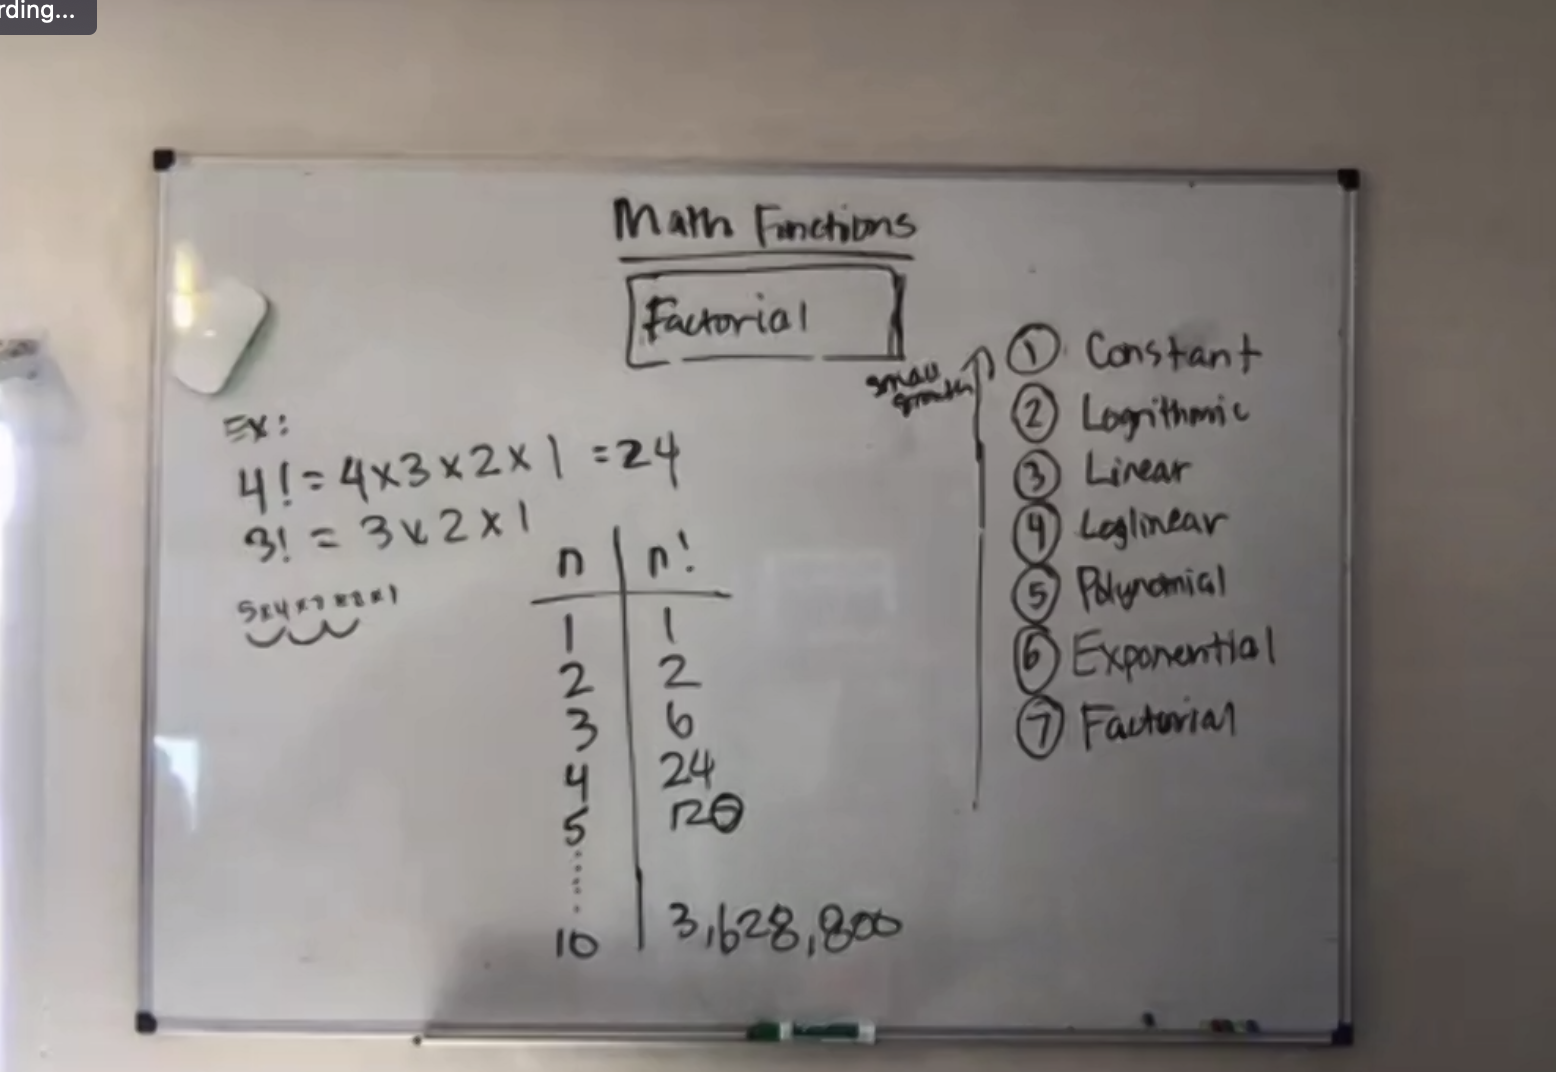 rding...
Math Functions
Factorial
Ex:
4! = 4x3x2x1 = 24
3! = 3x2x1
5x4x3x2x1
n | n!
1 | 1
2 | 2
3 | 6
4 | 24
5 | 120
10 | 3,628,800
small
growth
1 Constant
2 Logrithmic
3 Linear
4 Loglinear
5 Polynomial
6 Exponential
7 Factorial